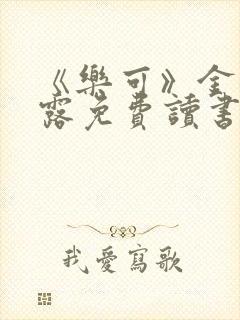 《樂可》全
露免費讀書
我愛寫歌